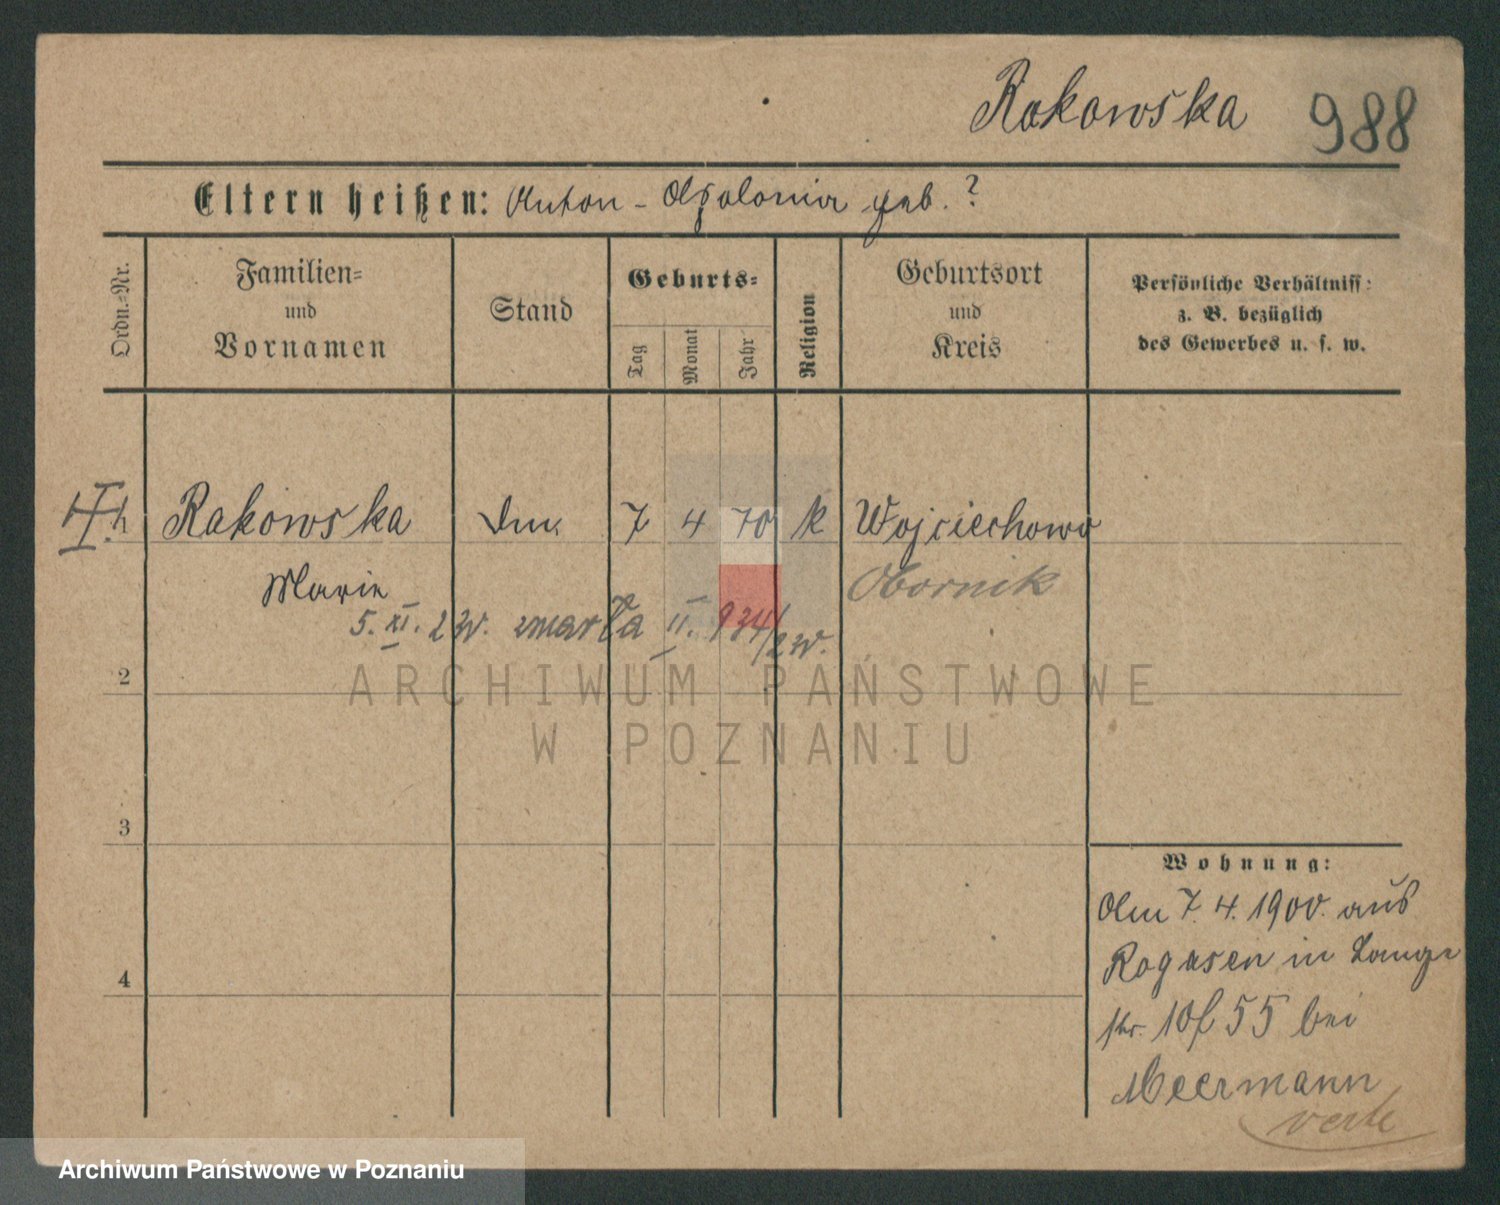 Rakowska 988
Eltern heißen: Anton - Apolonia geb. ?
Ordn.-Nr.
Familien-
und
Vornamen
Stand
Geburts-
Tag
Monat
Jahr
Religion
Geburtsort
und
Kreis
Persönliche Verhältniss:
z. B. bezüglich
des Gewerbes u. s. w.
Rakowska 7 4 70 k Wojciechowo
Marie Obornik
5. XI. zmarła II. 934/
2
3
4
Wohnung:
Am 7. 4. 1900. aus
Rogasen in Lange
str. 55 bei
Meermann
verte
ARCHIWUM PAŃSTWOWE
W POZNANIU
Archiwum Państwowe w Poznaniu